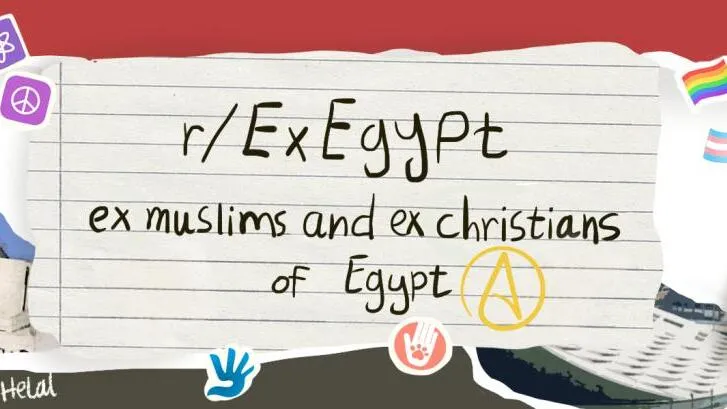 r/ExEgypt
ex muslims and ex christians
of Egypt
Helal